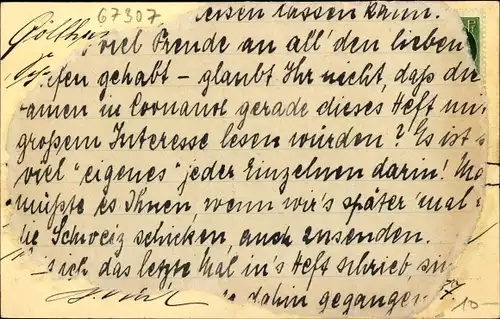 67307
lesen lassen kann.
viel Freude an all' den lieben
gehabt – glaubt Ihr nicht, daß die
gerade dieses Heft mit
großem Interesse lesen würden? Es ist
viel "eigenes" jeder Einzelnen darin!
müßte es Ihnen, wenn wir's später 'mal
Schweiz schicken, auch zusenden.
sich das letzte Mal in's Heft schrieb,
dahin gegangen
10-